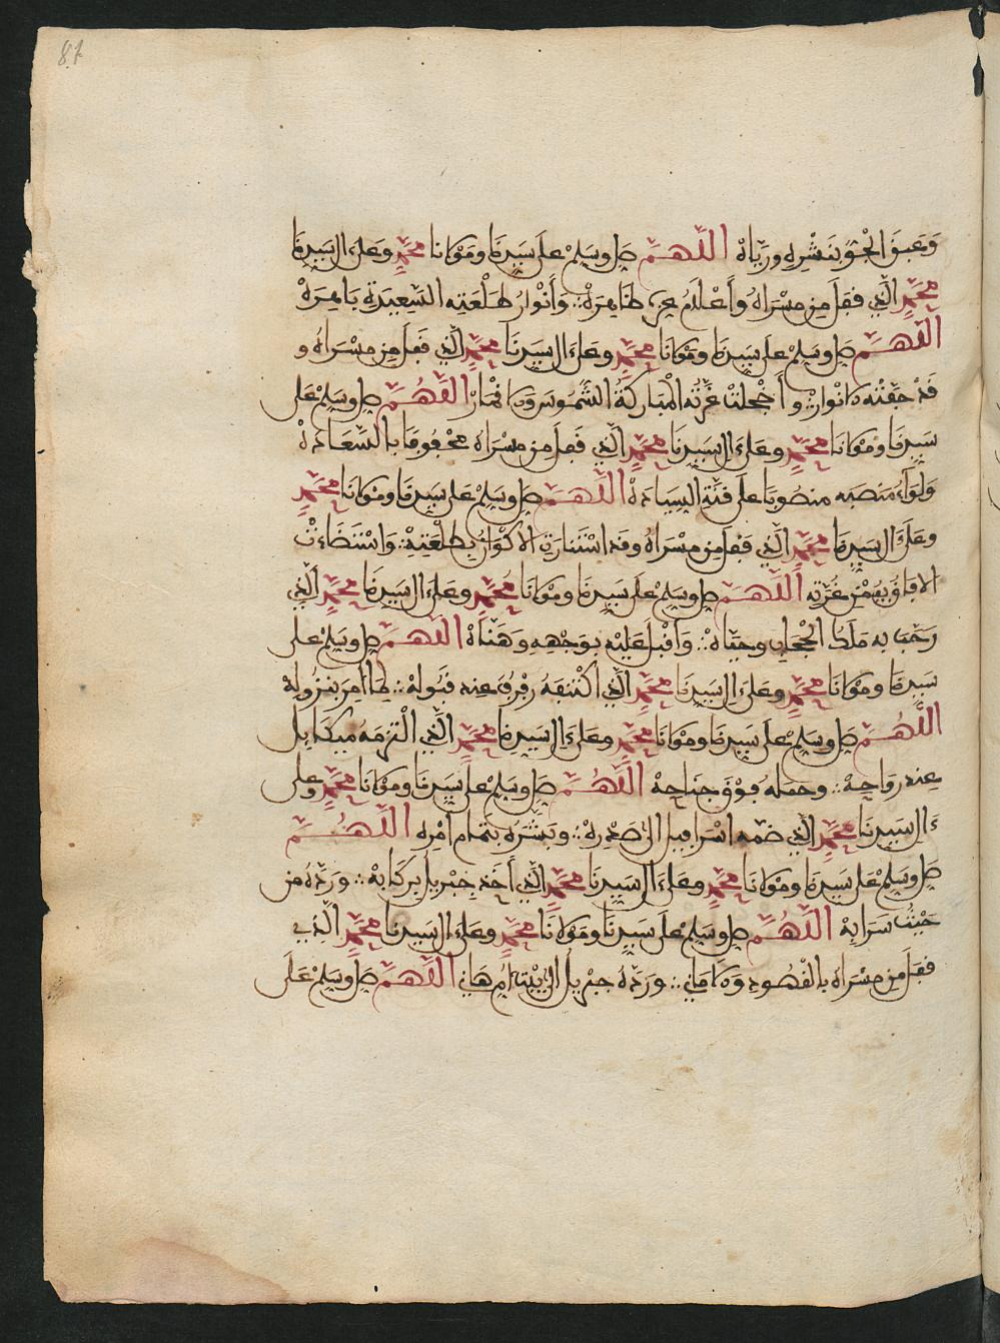 81
وَعَبِقَ الْجَوُّ بِنَشْرِهِ وَرَيَّاهُ اللَّهُمَّ صَلِّ وسَلِّمْ على سَيِّدِنَا ومَوْلَانا مُحَمَّدٍ وعَلَى ءَالِ سَيِّدِنَا
مُحَمَّدٍ الَّذِي قفَلَ مِن مسْرَاهُ وأَعْلَامُ عِزِّهِ ظَاهِرَهْ ∴ وَأَنْوَارُ طَلْعَتِهِ السَّعِيدَةِ بَاهِرَهْ
اللَّهُمَّ صَلِّ وسَلِّمْ على سَيِّدِنَا ومَوْلَانَا مُحَمَّدٍ وعَلَى ءَالِ سَيِّدِنَا مُحَمَّدٍ الَّذِي قَفَلَ مِن مسْرَاهُ و
قَدْ حَفَّتْهُ الانْوَارْ ∴ و أَخْجَلَتْ غُرَّتُهُ الْمُبَارَكَةُ الشُّمُوسَ والاقْمَارْ اللَّهُمَّ صَلِّ وسَلِّمْ عَلى
سَيِّدِنَا ومَوْلَانَا مُحَمَّدٍ وعَلَى ءَالِ سَيِّدِنَا مُحَمَّدٍ الَّذِي قَفَلَ مِن مسْرَاهُ محْفُوفًا بالسَّعَادَهْ
وَلِوَاءُ مَنصَبِه منصُوبًا على قُنَّةِ السِّيَادَهْ اللَّهُمَّ صَلِّ وسَلِّمْ عَلى سَيِّدِنَا ومَوْلَانَا مُحَمَّدٍ
وعَلَى ءَالِ سَيِّدِنَا مُحَمَّدٍ الَّذِي قَفَلَ مِن مسْرَاهُ وقد اسْتَنَارَتِ الاكْوَانُ بِطَلْعَتِهْ ∴ وَاسْتَضَاءَتْ
الافَاقُ بِيُمْنِ غُرَّتِهِ اللَّهُمَّ صَلِّ وسَلِّمْ على سَيِّدِنَا ومَوْلَانَا مُحَمَّدٍ وعَلَى ءَالِ سَيِّدِنَا مُحَمَّدٍ الَّذِي
رَحَّبَ به مَلَكُ الْحِجَابِ وحيَّاهْ ∴ وَأَقْبَلَ عَلَيْهِ بوَجْهِهِ وَهَنَّاهْ اللَّهُمَّ صَلِّ وسَلِّمْ على
سَيِّدِنَا ومَوْلَانَا مُحَمَّدٍ وعَلَى ءَالِ سَيِّدِنَا مُحَمَّدٍ الَّذِي اكْتَنَفَهُ رَفْرَفُ عِند قَبُولِهْ ∴ لمَّا أُمِرَ بنزُولِهْ
اللَّهُمَّ صَلِّ وسَلِّمْ على سَيِّدِنَا ومَوْلَانَا مُحَمَّدٍ وعَلَى ءَالِ سَيِّدِنَا مُحَمَّدٍ الَّذِي الْتزمَهُ ميكَايِل
عِند رَوَاحِهْ ∴ وحمَله فَوْقَ جنَاحِهْ اللَّهُمَّ صَلِّ وسَلِّمْ على سَيِّدِنَا ومَوْلَانَا مُحَمَّدٍ وعلى
ءَالِ سَيِّدِنَا مُحَمَّدٍ الَّذِي ضمَّه اسْرَافيل الى صَدْرِهْ ∴ وبَشَّرَهُ بتَمَام أَمْرِهِ اللَّهُمَّ
صَلِّ وسَلِّمْ عَلى سَيِّدِنَا ومَوْلَانَا مُحَمَّدٍ وعَلَى ءَالِ سَيِّدِنَا مُحَمَّدٍ الَّذِي أَخَذ جِبْرِيلُ بِرِكَابِهْ ∴ ورَدَّهُ من
حَيْثُ سَرَا بِهْ اللَّهُمَّ صَلِّ وسَلِّمْ على سَيِّدِنَا ومَوْلَانَا مُحَمَّدٍ وعَلَى ءَالِ سَيِّدِنَا مُحَمَّدٍ الَّذِي
قفَلَ مِن مسْرَاهُ بالقصُودِ وَالامَانِي ∴ ورَدَّهُ جبْرِيلُ الى بَيْتِ أُمِّ هَانِي اللَّهُمَّ صَلِّ وسَلِّمْ عَلَى